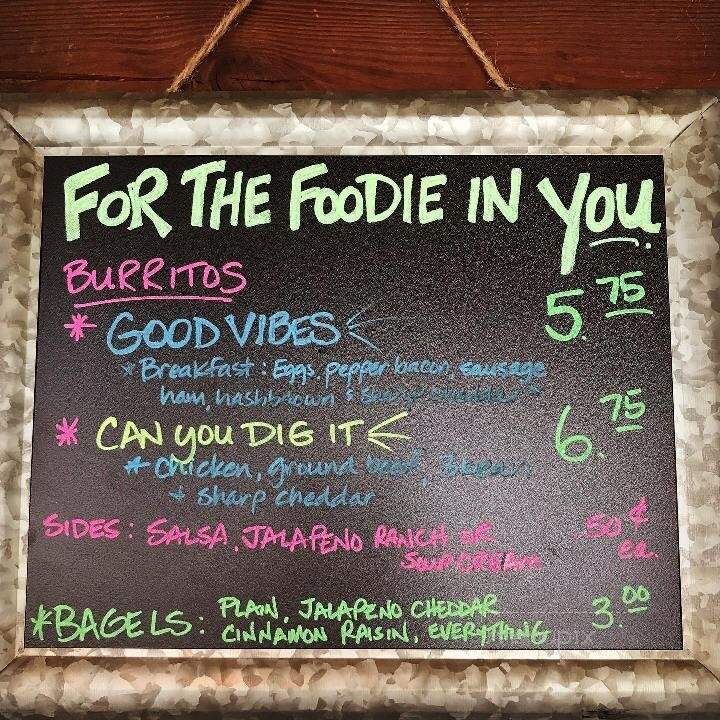 FOR THE FOODIE IN YOU.
BURRITOS
* GOOD VIBES 5.75
* Breakfast: Eggs, pepper bacon, sausage
ham, hashbrown & sharp cheddar
* CAN YOU DIG IT 6.75
* Chicken, ground beef, 3 bean
+ sharp cheddar
SIDES: SALSA, JALAPENO RANCH OR .50¢
SOUR CREAM ea.
*BAGELS: PLAIN, JALAPENO CHEDDAR 3.00
CINNAMON RAISIN, EVERYTHING